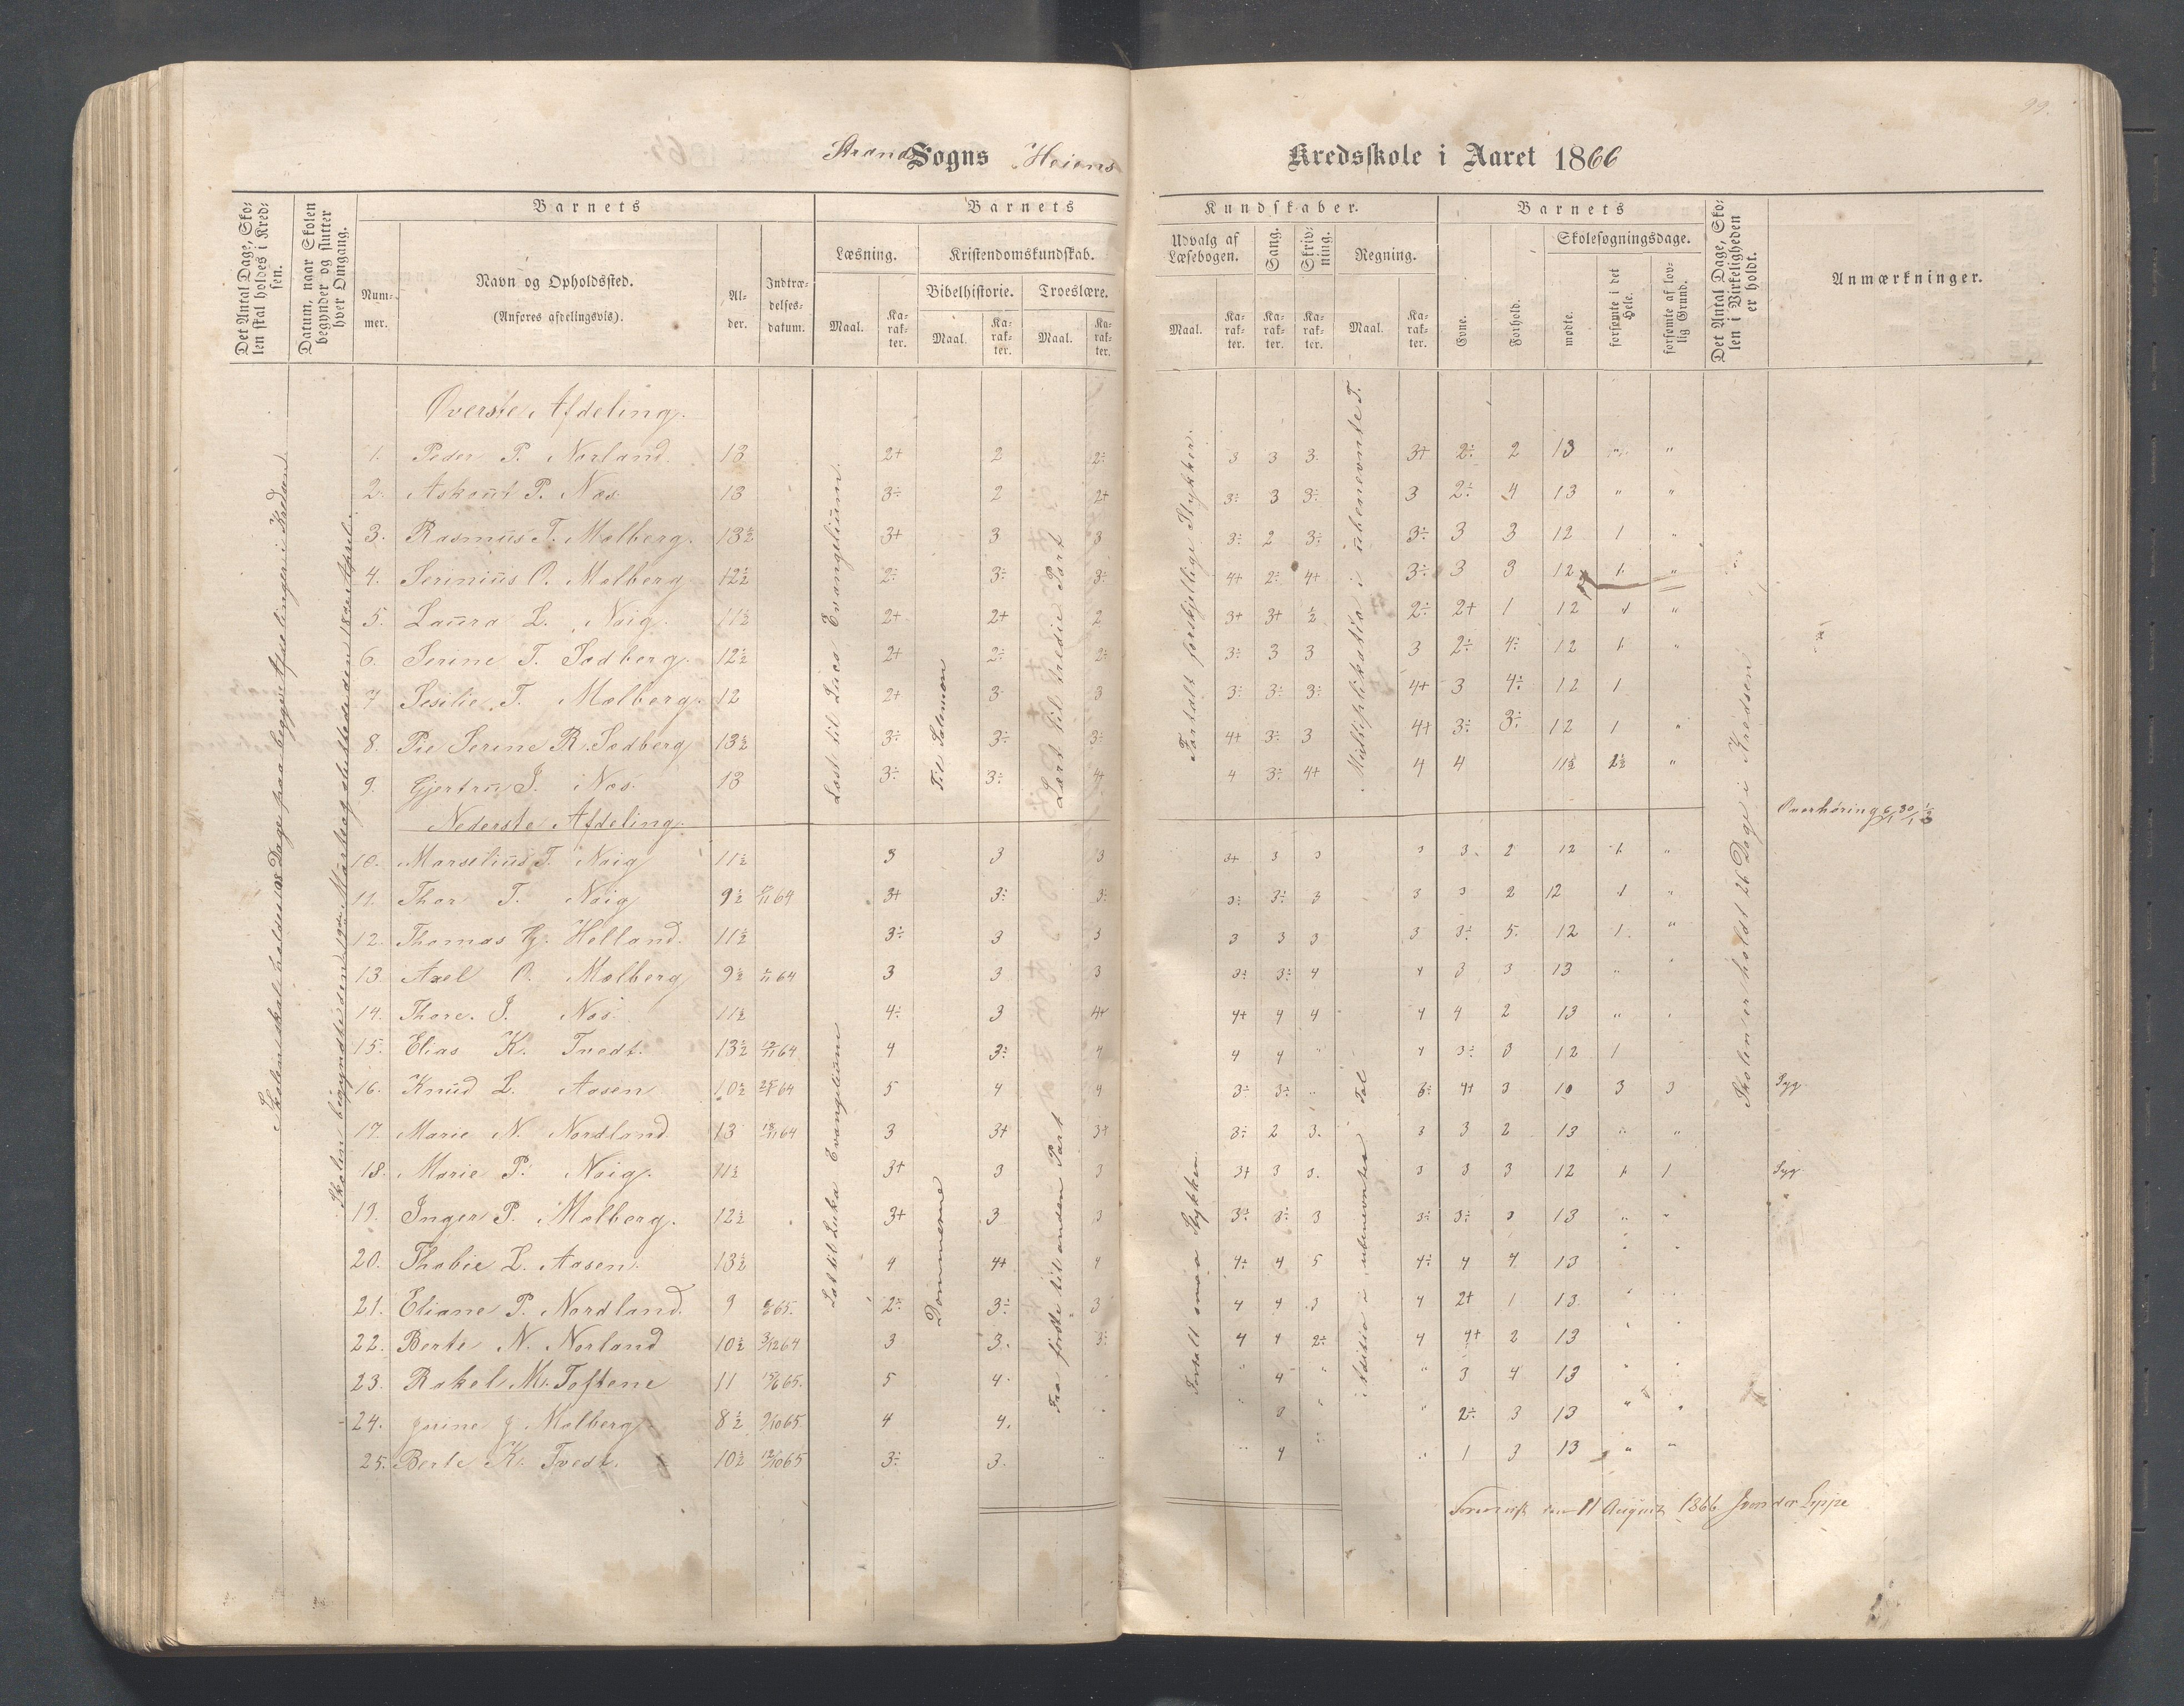 99.
Strands Sogns Heiens Kredsskole i Aaret 1866
Det Antal Dage, Skolen skal holdes i Kredsen.
Datum, naar Skolen begynder og slutter hver Omgang.
Barnets
Nummer.
Navn og Opholdssted.
(Anføres afdelingsvis).
Alder.
Indtrædelsesdatum.
Barnets Kundskaber.
Læsning.
Maal.
Karakter.
Kristendomskundskab.
Bibelhistorie.
Maal.
Karakter.
Troeslære.
Maal.
Karakter.
Udvalg af Læsebogen.
Maal.
Karakter.
Sang.
Karakter.
Skrivning.
Karakter.
Regning.
Maal.
Karakter.
Barnets
Evne.
Forhold.
Skolesøgningsdage.
mødte.
forsømte i det Hele.
forsømte af lovlig Grund.
Det Antal Dage, Skolen i Virkeligheden er holdt.
Anmærkninger.
Skolen skal holdes 108 Dage paa begge Afdelinger i Kredsen
Skolen begyndte den 19de Marts og sluttede den 18de April.
Læst til Lucs Evangelium
Til Salomon
Lært til tredie Part
Fortalt forskjellige Stykker.
Multiplikation i ubenevnte T.
Skolen er holdt 26 Dage i Kredsen
Øverste Afdeling.
1. Peder P. Norland 13 2+ 2 2÷ 3 3 3. 3+ 2÷ 2 13 " "
2. Askout P. Næs 13 3÷ 2 2+ 3÷ 3 3÷ 3 2÷ 4 13 " "
3. Rasmus T. Mølberg. 13½ 3+ 3 3 3÷ 2 3÷ 3÷ 3 3 12 1 "
4. Serinius O. Mølberg 12½ 2÷ 3÷ 3÷ 4+ 2÷ 4+ 3÷ 3 3 12 1 "
5. Laura L. Naig. 11½ 2+ 2+ 2 3+ 3+ ½ 2÷ 2+ 1 12 1 "
6. Serine T. Sødberg. 12½ 2+ 2÷ 2÷ 3÷ 3 3 3 2÷ 4÷ 12 1 "
7 Sesilie T. Mølberg. 12 2+ 3 3 3÷ 3÷ 3÷ 4+ 3 4÷ 12 1
8. Pie Serine R. Sødberg 13½ 3÷ 3÷ 3÷ 4+ 3÷ 3 4+ 3÷ 3÷ 12 1 "
9. Gjertru J. Næs. 13 3÷ 3÷ 4+ 4 3÷ 4+ 4 4 11½ 1½ "
Overhøring
Nederste Afdeling.
Læs til Luka Evangelium
Dommerne
Fra første til anden Part
Fortalt smaa Stykker
Adition i ubenevnte Tal
10. Marselius T. Naig 11½ 3 3 3 3+ 3 3 3 3. 2 12 1 "
11. Thor T. Naig 9½ 3+ 3÷ 3÷ 3÷ 3÷ 3 3 3 2 12 1 "
12. Thomas Hj. Helland. 11½ 3÷ 3 3 3 3 3 3 3÷ 5. 12 1. "
13. Axel O. Mølberg 9½ 3 3 3 3÷ 3÷ 4 4 3 3 13 " "
14. Thore. J. Næs 11½ 4÷ 3 4+ 4+ 4 4 4 4 2 13 "
15. Elias K. Tvedt. 13½ 4 3÷ 4 4 4 " 4 3÷ 3 12 1
16. Knud L. Aasen 10½ 5 4 4 3÷ 3÷ " 3÷ 4+ 3 10 3 3 Syg.
17. Marie N. Nordland 13 3 3+ 3+ 3÷ 2 3. 3 3 2 13 " "
18. Marie P. Naig. 11½ 3+ 3 3 3+ 3 3. 3 3 3 12 1 1 Syg.
19. Inger P. Mølberg. 12½ 3+ 3 3 3÷ 3÷ 3 3÷ 3÷ 3 13 " " "
20. Thabie L. Aasen. 13½ 4 4+ 4 4÷ 4 5 4÷ 4 4 13 " "
21. Eliane P. Nordland. 9 2÷ 3÷ 3 4 4 3 4 2+ 1 13 " "
22. Berte N. Norland 10½ 3 3. 3÷ 4 4 2÷ 4 4+ 2 13 " "
23. Rakel M. Toftene 11 5 4. " " 4 " " 3 4 13 " "
24. Jorine J Mølberg. 8½ 4 4. " " 3 " " 2÷ 3 13 " "
25. Berte K. Tvedt. 10½ 3÷ 3. " " 4 " " 1 3 13 " "
Forevist den 11 August 1866 J von der Lippe